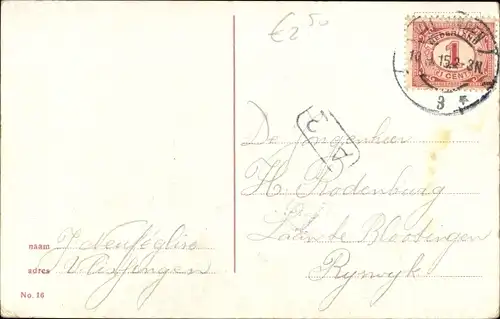 €2,50
NEDERLAND
1
CENT
3
De Jongenheer
H Rodenburg
Laan te Blotingen
Ryswyk
naam J Neuféglise
adres Vlissingen
No. 16